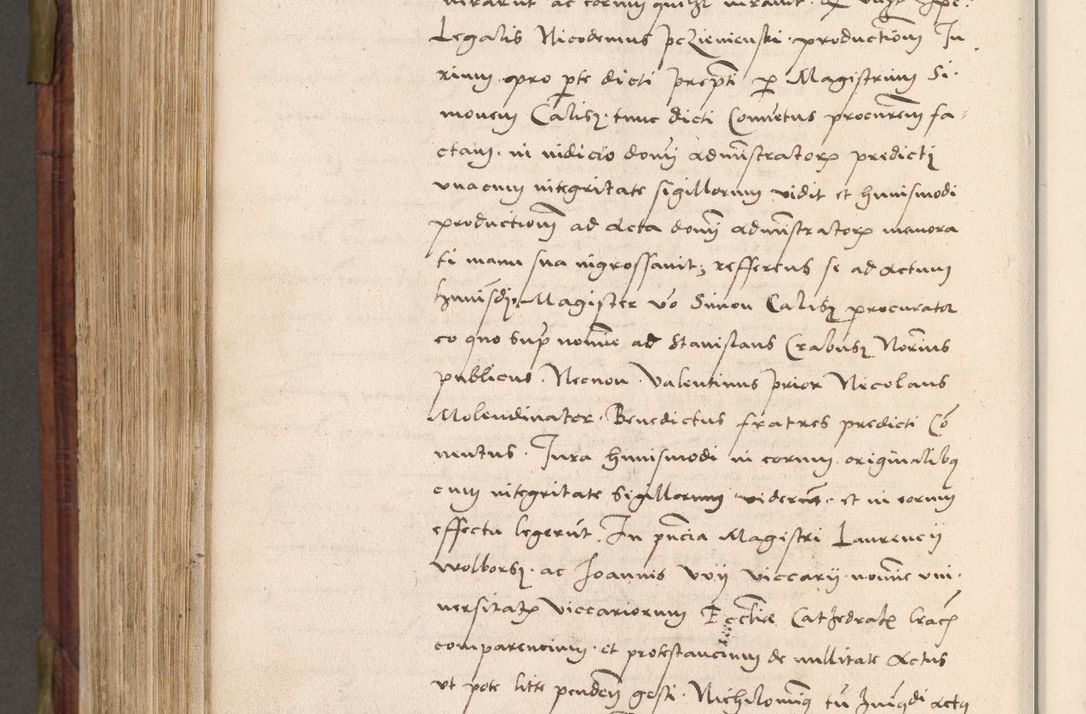 Legalis Nicodemus pczienienski productionem Iu
rium pro pte dicti prepti per Magistrum Si
monem Calisz tunc dicti Conventus procurem fa
ctam in iudicio domi administratorx predicti
unacum integritate sigillorum vidit et huiusmodi
productionem ad Acta domi administratorx memora
ti manu sua ingrossavit, refferens se ad actum
huiusdi, Magister vo Simon Calisz procurator
eo quo supr nomine ad Stanislaus Crabusz Norius
publicus Necnon Valentinus prior Nicolaus
Molendinator Benedictus fratres predicti Co
nventus Iura huiusmodi in eorum originalibq
cum integritate Sigillorum viderunt et in eorum
effectu legerut. In pncia Magistri Laurencii
wolborsz ac Ioannis viccarii nomine uni
versitatx viccariorum Ecclie Cathedralx Crac
comparencium et protestancium de nullitate Actus
ut pote litte penden gesti Nichilominq tn actq